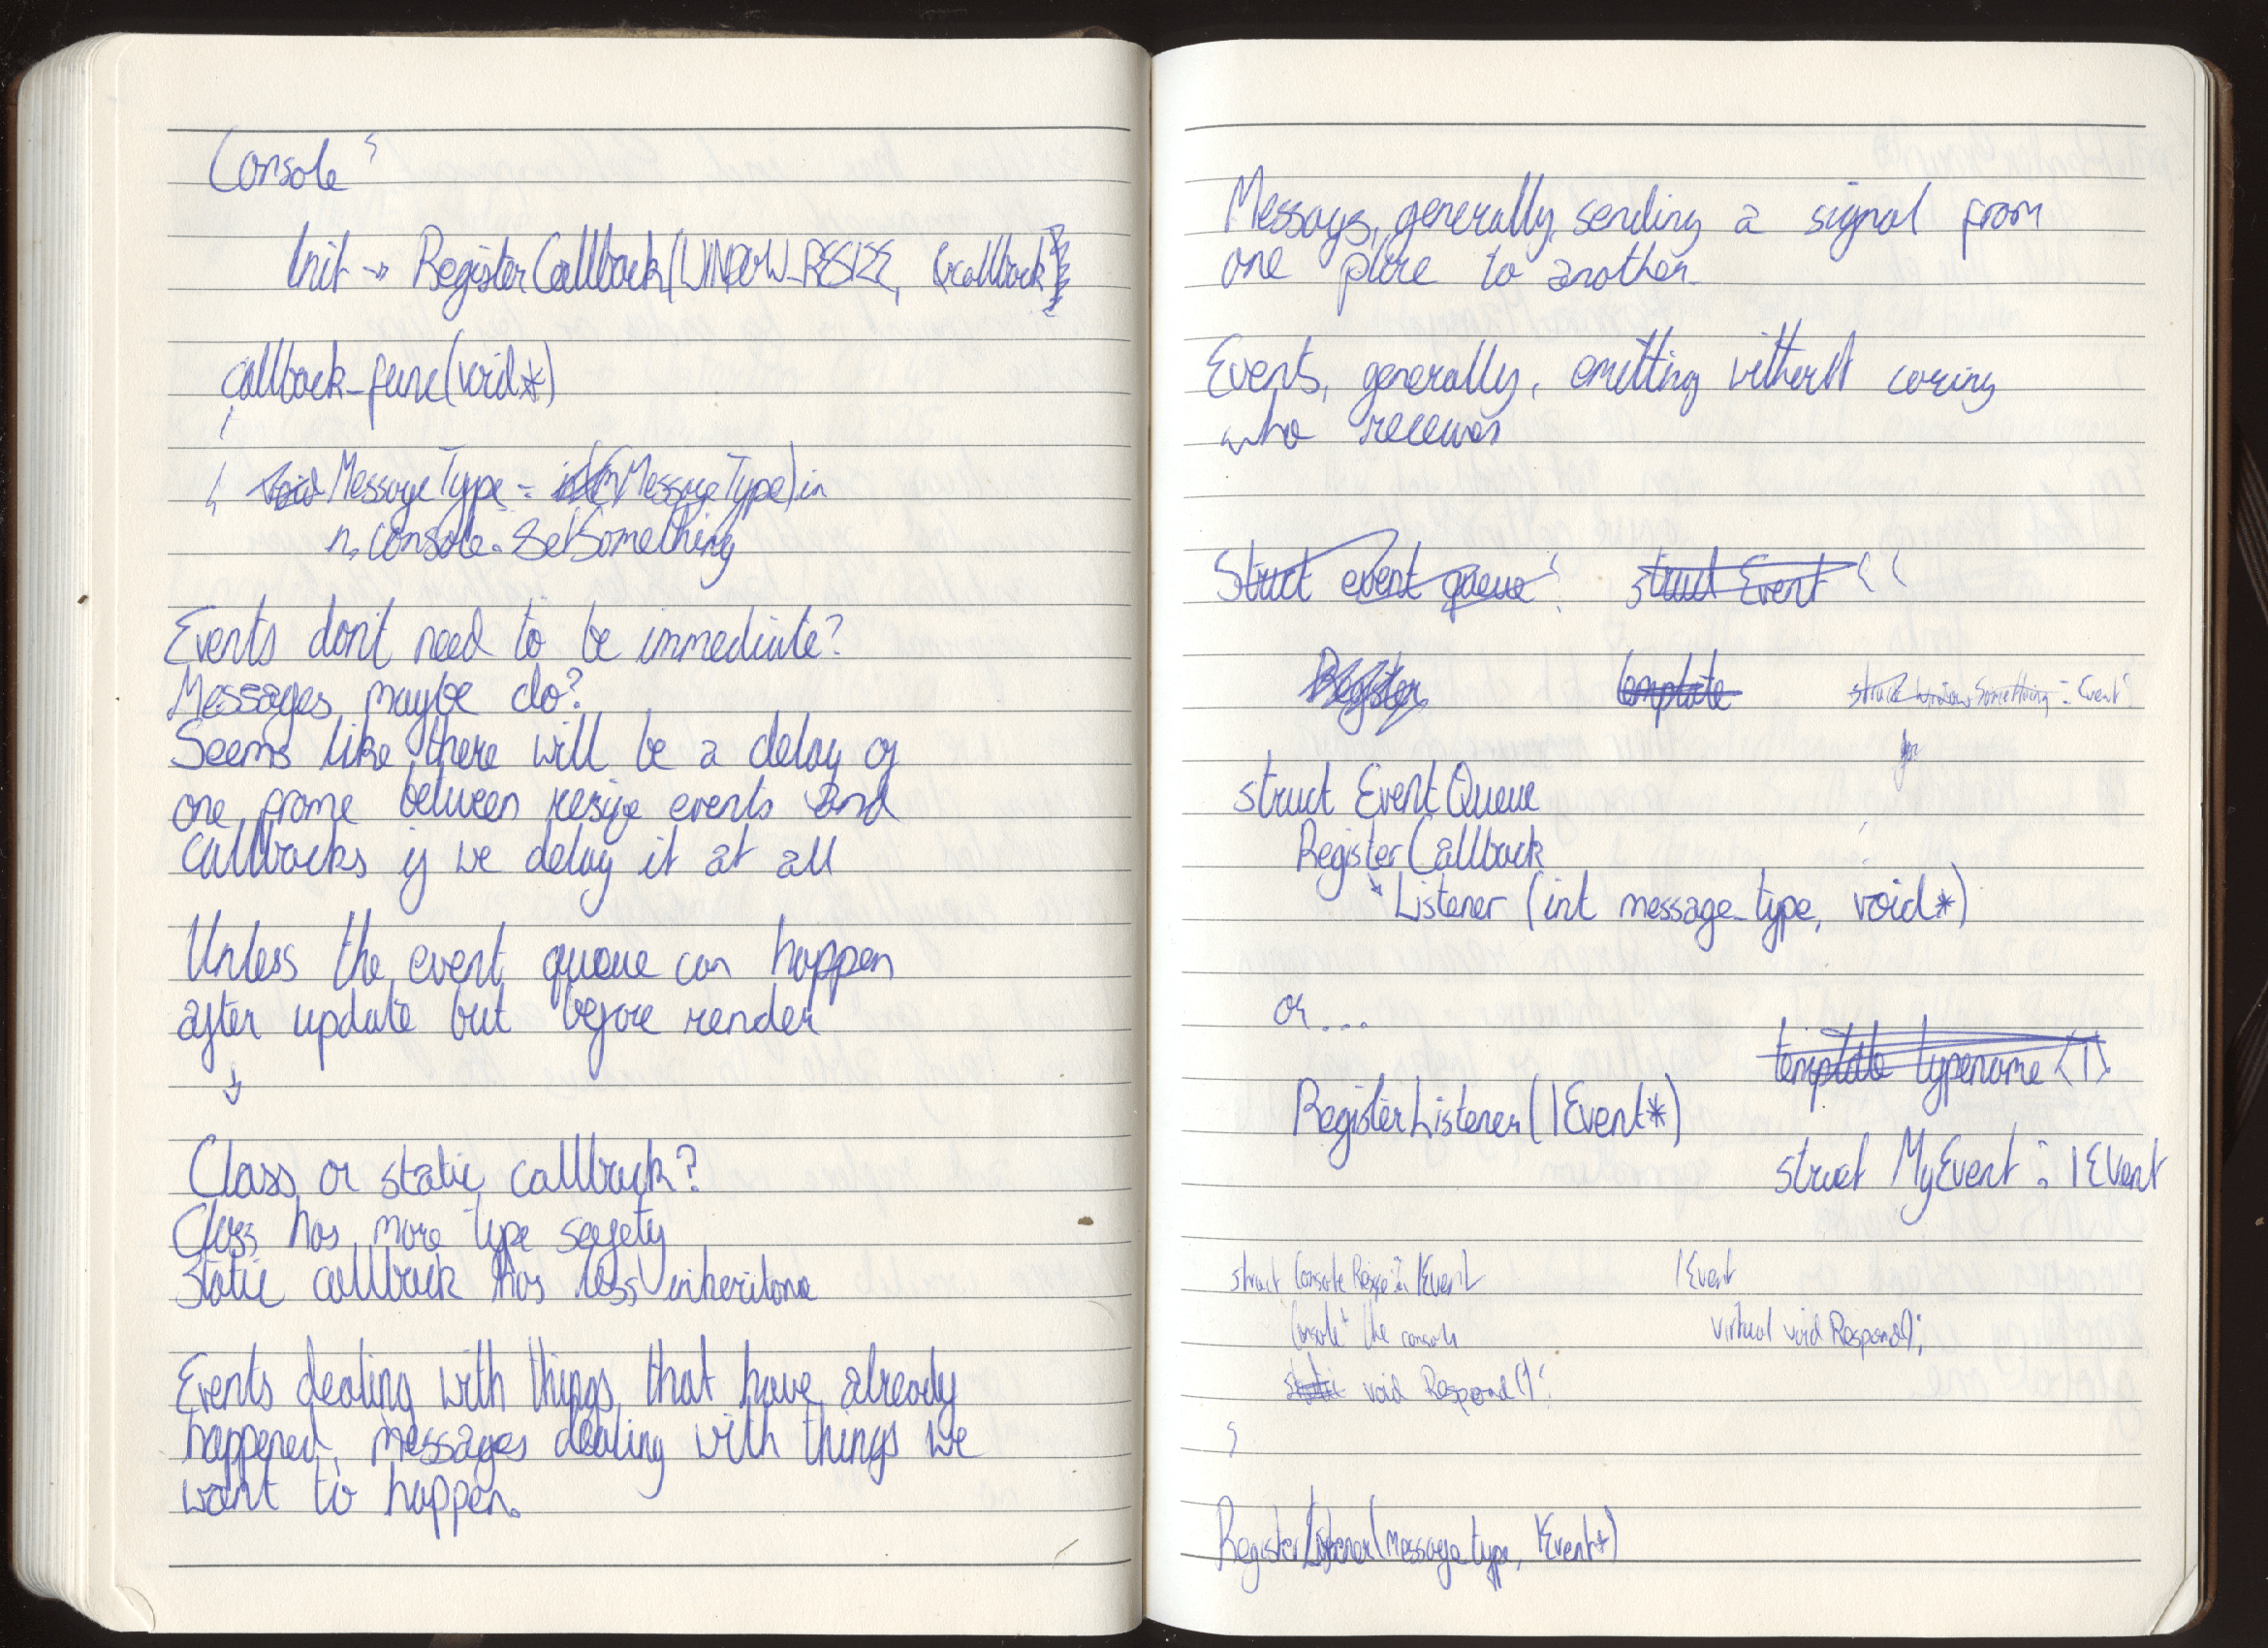 Console {
Init → RegisterCallback(WINDOW_RESIZE, &callback)
callback_func(void*)
{
void MessageType = (MessageType) in
n. console. SetSomething
Events don't need to be immediate?
Messages maybe do?
Seems like there will be a delay of
one frame between resize events and
callbacks if we delay it at all
Unless the event queue can happen
after update but before render
↓
Class or static callback?
Class has more type safety
Static callback has less inheritance
Events dealing with things that have already
happened, messages dealing with things we
want to happen.
Messages, generally, sending a signal from
one place to another.
Events, generally, emitting without caring
who receives
Struct event queue {
struct Event {{
Register
template
struct Window Something : Event {
struct EventQueue
RegisterCallback
↘ Listener (int message_type, void*)
or....
template typename <T>
RegisterListener(IEvent*)
struct MyEvent : IEvent
struct ConsoleResize : IEvent
IEvent
Console* the console
virtual void Respond();
static void Respond() {
}
RegisterListener(Message type, IEvent*)